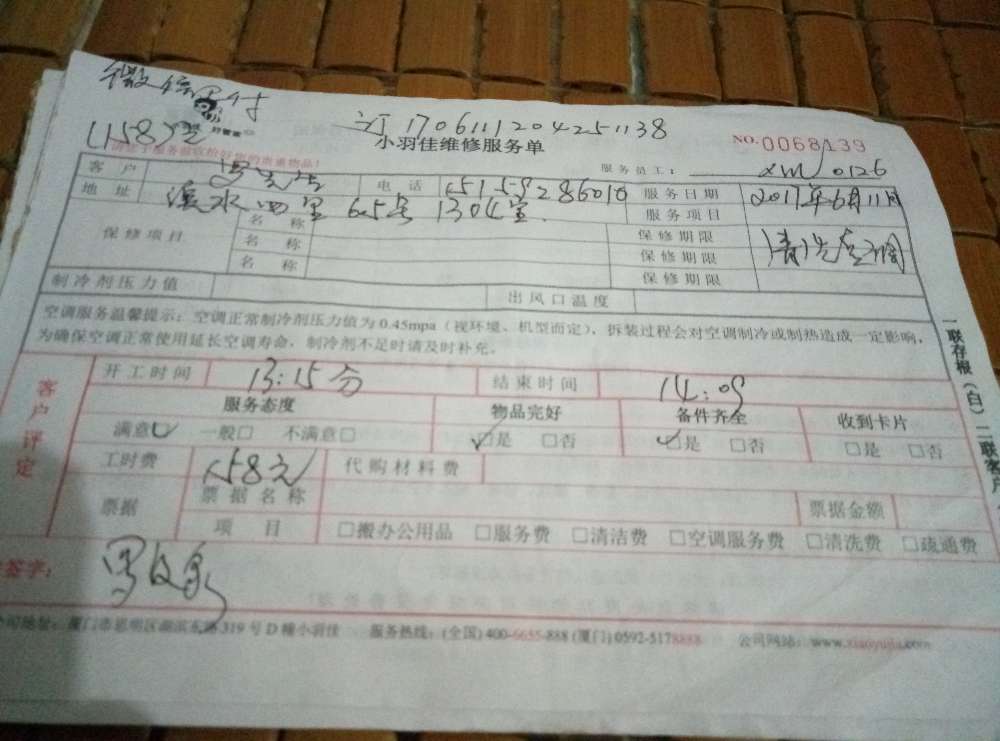 微信支付
158元
订 1706111204251138
小羽佳维修服务单
NO.0068139
服务员工: XM0126
客户 电话 服务日期 2017年6月11日
地址 溪水四里 65号 1304室 服务项目 清洗空调
保修项目 名称 保修期限
名称 保修期限
名称 保修期限
制冷剂压力值 出风口温度
空调服务温馨提示:空调正常制冷剂压力值为0.45mpa(视环境、机型而定),拆装过程会对空调制冷或制热造成一定影响,
为确保空调正常使用延长空调寿命,制冷剂不足时请及时补充。
客户评定
开工时间 13:15分 结束时间 14:09
服务态度 物品完好 备件齐全 收到卡片
满意☑ 一般□ 不满意□ ☑是 □否 ☑是 □否 □是 □否
工时费 158元 代购材料费
票据 票据名称 票据金额
项目 □搬办公用品 □服务费 □清洁费 □空调服务费 □清洗费 □疏通费
签字:
公司地址:厦门市思明区湖滨东路319号D幢小羽佳 服务热线:(全国)400-6655-888 (厦门)0592-5178888 公司网站:www.xiaoyujia.com
一联存根(白) 二联客户